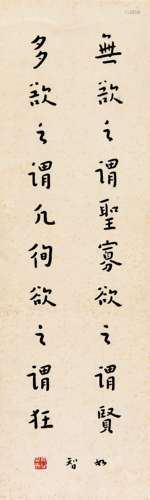 無欲之謂聖寡欲之謂賢
多欲之謂凡徇欲之謂狂
如智